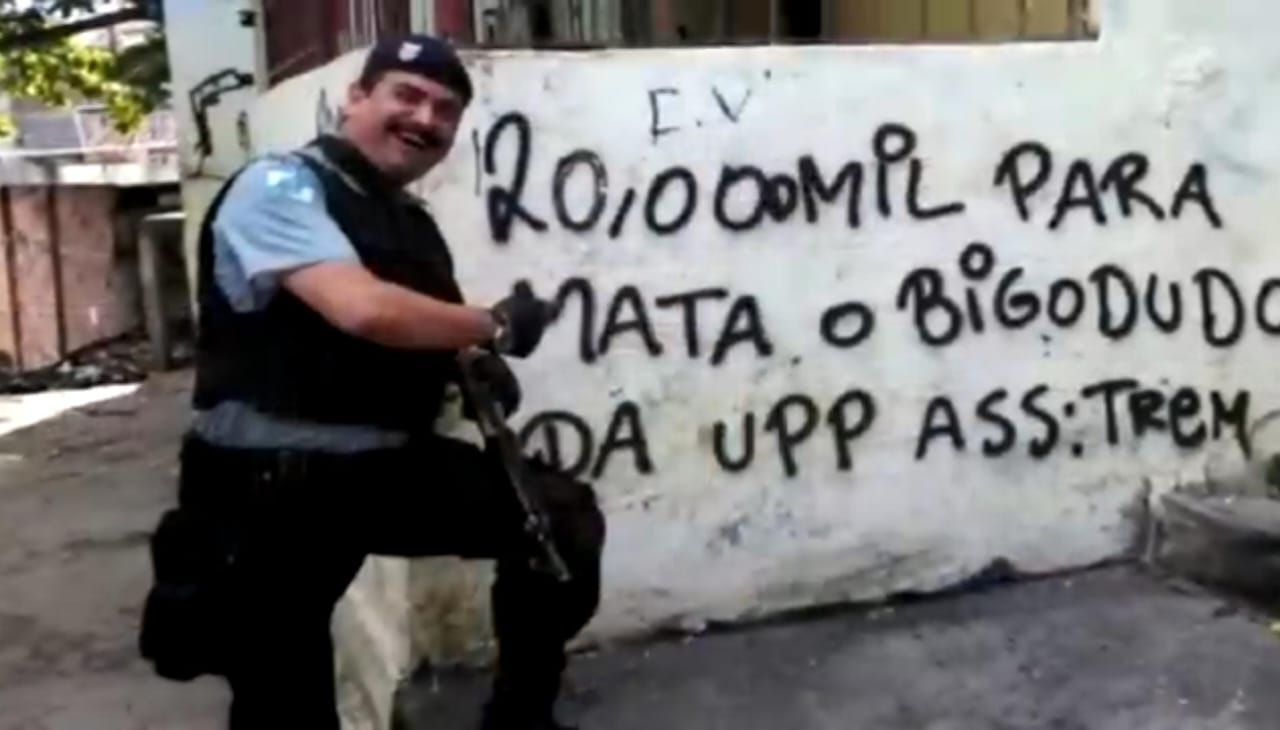 C.V
20,000MIL PARA
MATA O BIGODUDO
DA UPP ASS:TREM